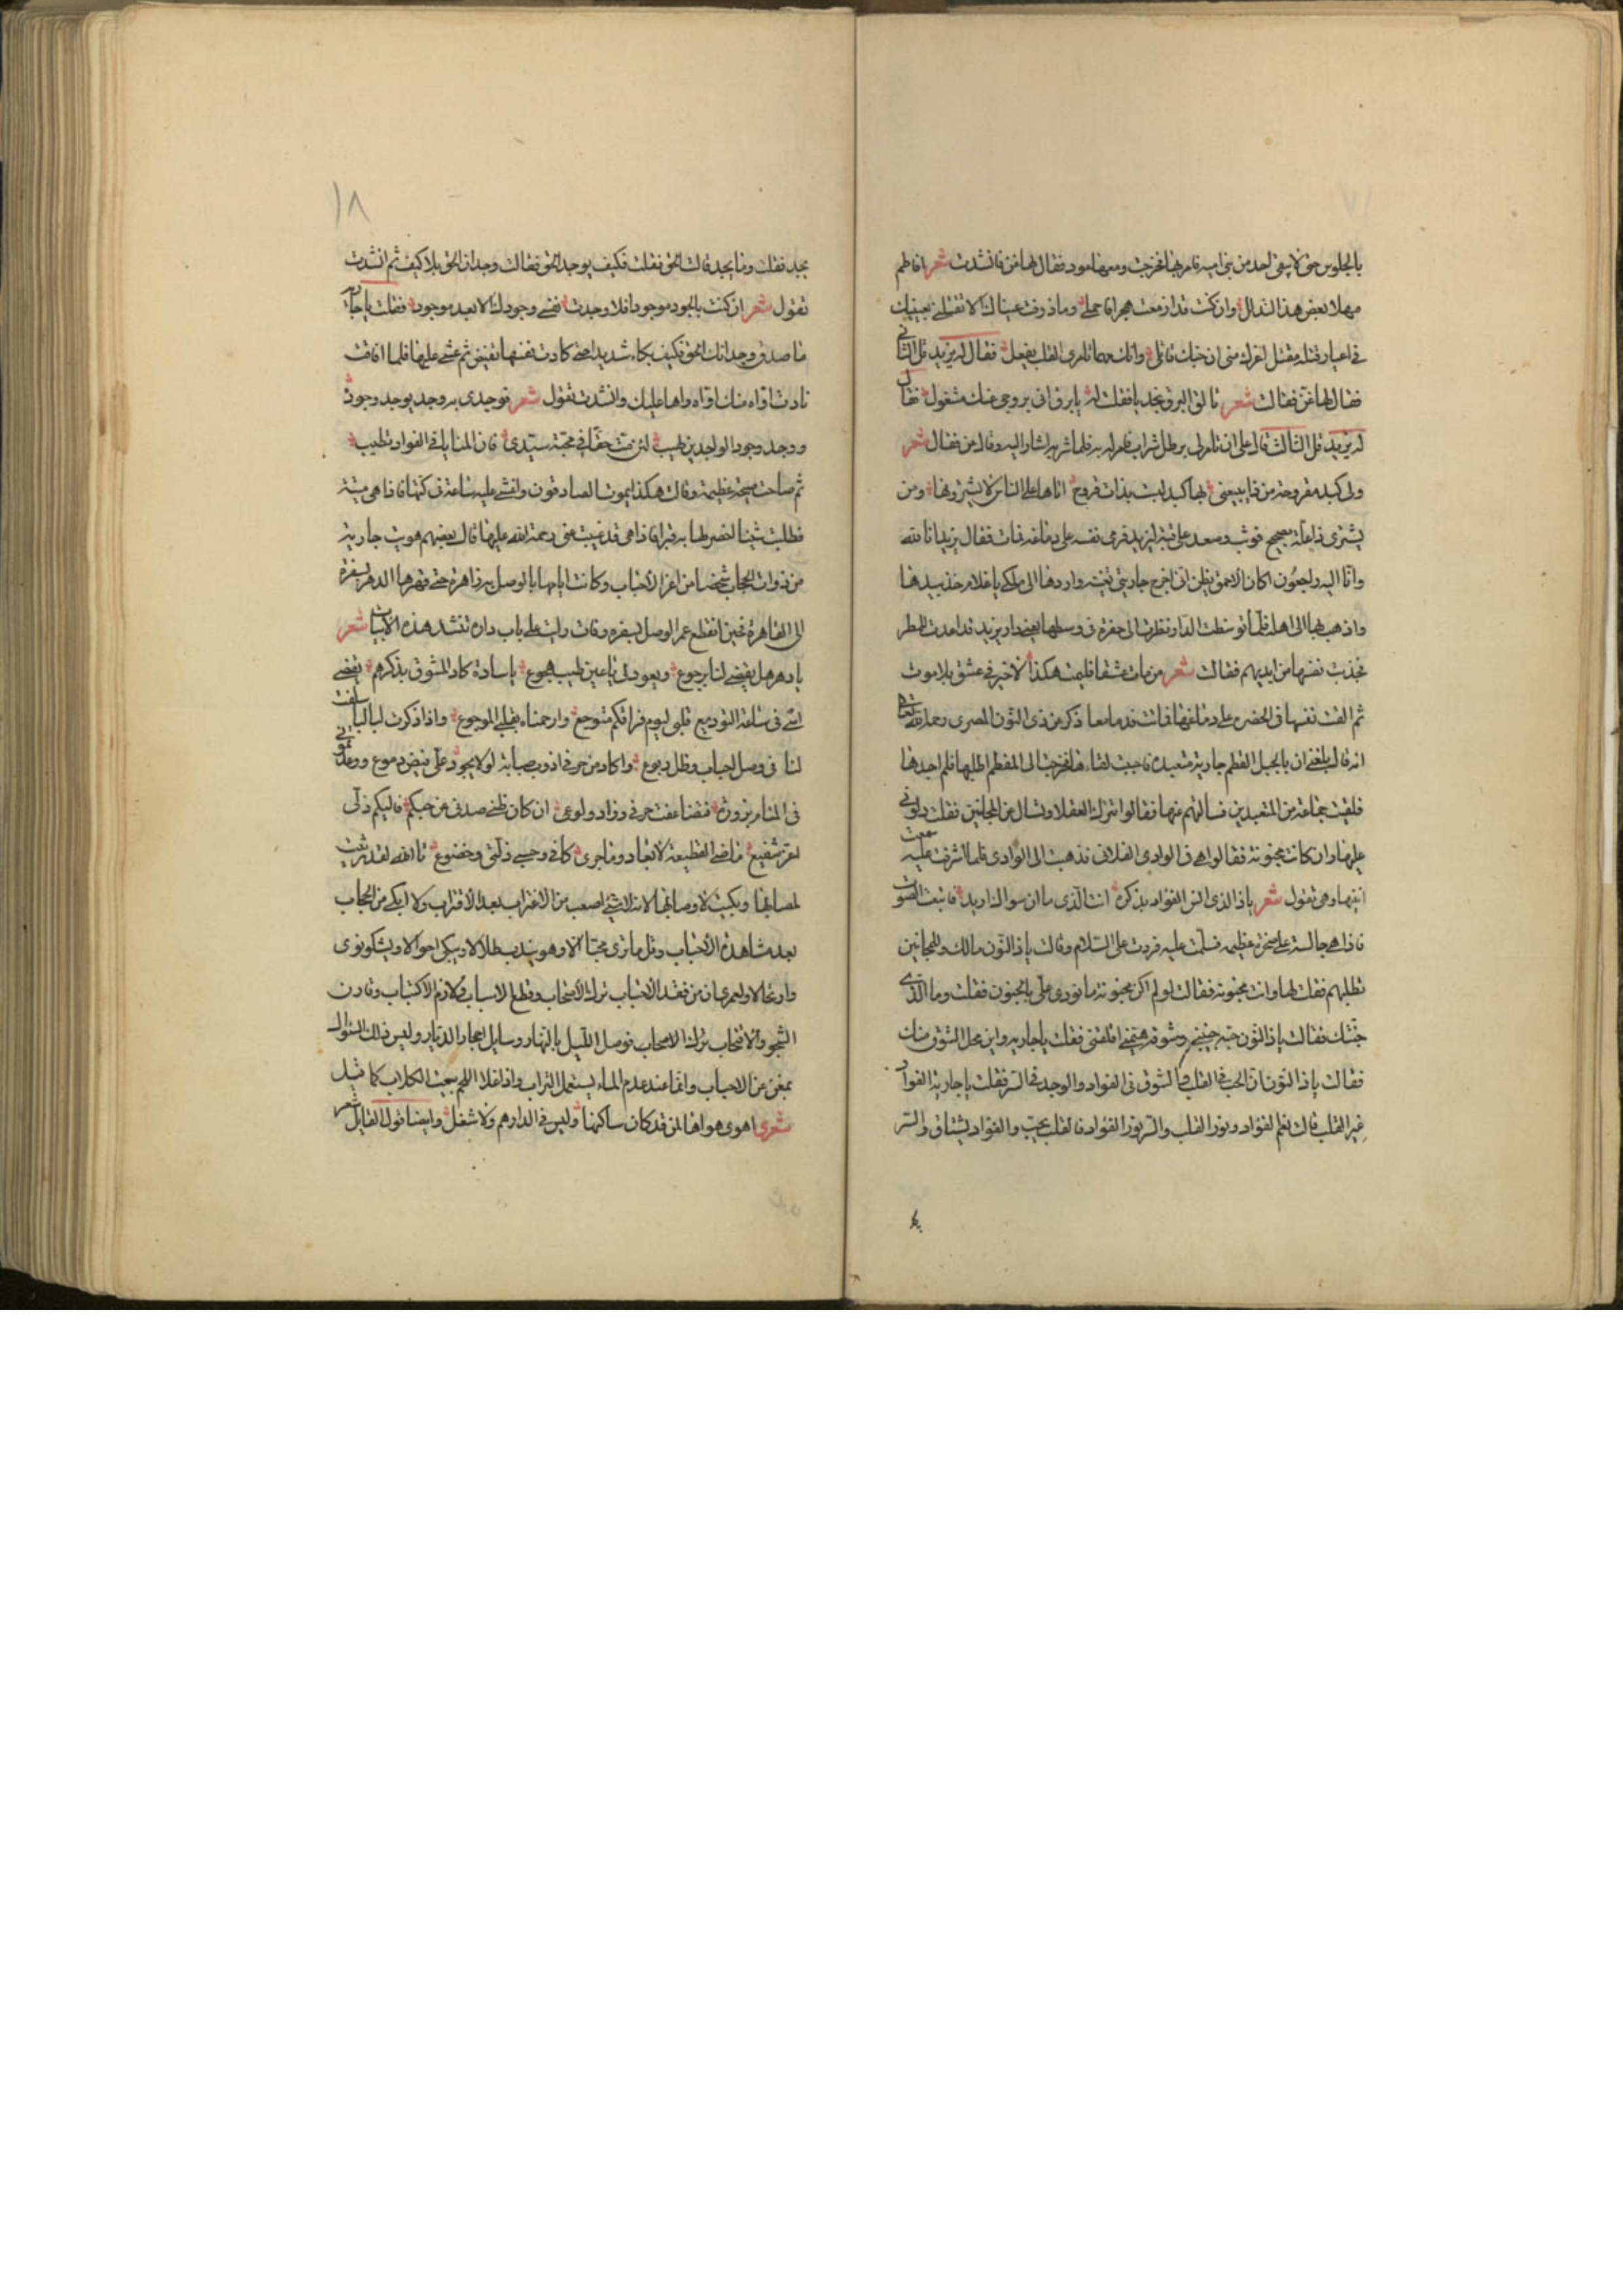 بالجلوس حتى لا يبقى احد من بنى امية فامر بها فخرجت ومعها عود فقال لها غن فانشدت شعر افاطم
مهلا بعض هذا التدلل وان كنت قد ازمعت هجرا فاجملى وما ذرفت عيناك الا لتقتلى بعينيك
فى اعشار قلب مقتل اغرك منى ان حبك قاتلى وانك مهما تامرى القلب يفعل فقال له يزيد قل الثانى
فقال لها غن فقالت شعر تالق البرق نجديا فقلت له يا برق انى بروحى عنك مشغول فقال
له يزيد قل الثالث قال على ان تامر لى برطل شراب فامر له به فلما شربه اشار اليه وقال غن فقال شعر
ولى كبد مقروحة من ذا يبيعنى بها كبدا ليست بذات قروح اباها على الناس لا يشترونها ومن
يشترى ذا علة بصحيح فوثب وصعد على قبة ليزيد فرمى نفسه على دماغه فمات فقال يزيد انا لله
وانا اليه راجعون اكان الاحمق يظن انى اخرج جاريتى تغنيه واردها الى ملكى يا غلام خذ بيدها
واذهب بها الى اهله فلما توسطت الدار نظرت الى حفرة فى وسطها بعض دار يزيد قد اعدت للمطر
فجذبت نفسها من ايديهم فقالت شعر من مات عشقا فليمت هكذا لا خير فى عشق بلا موت
ثم القت نفسها فى الحضرة على دماغها فماتت قدما معا ذكر عن ذى النون المصرى رحمه الله تعالى
انه قال بلغنى ان بالجبل المقطم جارية متعبدة فاحببت لقاءها فخرجت الى المقطم اطلبها فلم اجدها
فلقيت جماعة من المتعبدين فسالتهم عنها فقالوا اتترك العقلا وتسال عن المجانين فقلت دلونى
عليها وان كانت مجنونة فقالوا هى فى الوادى الفلانى فذهبت الى الوادى فلما اشرفت عليه سمعت
انينها وهى تقول شعر يا ذا الذى انس الفواد بذكره انت الذى ما ان سواك اريد فاتبعت الصوت
فاذا هى جالسة على صخرة عظيمة فسلمت عليها فردت على السلام وقالت يا ذا النون مالك وللمجانين
تطلبهم فقلت لها وانت مجنونة فقالت لو لم اكن مجنونة ما نودى على بالجنون فقلت وما الذى
جننك فقالت يا ذا النون حبه جننى وشوقه هيمنى اقلقنى فقلت يا جارية واين محل الشوق منك
فقالت يا ذا النون ان الحب فى القلب والشوق فى الفواد والوجد فى السر فقلت يا جارية الفواد
غير القلب قالت نعم الفواد نور القلب والسر نور الفواد فالقلب يحب والفواد يشتاق والسر
١٨
يجد فقلت وما يجد قالت الحق فقلت فكيف يوجد الحق فقالت وجدان الحق بلا كيف ثم انشدت
تقول شعر ان كنت بالجود موجودا فلا وجدت نفسى وجودك الا بعد موجود فقلت يا جارية
ما صدق وجدانك الحق فكيف بكاء شديدا حتى كادت نفسها تفيض ثم غشى عليها فلما افاقت
نادت اواه منك اواه واها عليك وانشدت تقول شعر توجدى به وجد بوجد وجود
ووجد وجود الواجدين طيب لئن مت حقا فى محبة سيدى فان المنايا فى الفواد تطيب
ثم صاحت صيحة عظيمة وقالت هكذا يموت الصادقون واغشى عليها ساعة فحركتها فاذا هى ميتة
فطلبت شيئا لنحفر لها به قبرا فاذا هى قد غيبت عنى رحمة الله عليها قال بعضهم هويت جارية
من ذوات الحجاب شخصا من اعز الاحباب وكانت ايامها بالوصل به زاهرة حتى قهرها الدهر بسفرة
الى القاهرة فحين انقطع عمر الوصل لبسفره وفات وليت على باب داره تنشد هذه الابيات شعر
يا دهر هل يقضى لنا برجوع ويعود لى يا عين طيب هجوع يا سادة كاد المشوق بذكرهم يقضى
اسى فى ساعة التوديع قلبى ليوم فراقكم متوجع وارحمتاه بقلبى الموجوع واذا ذكرت لياليا سلفت
لنا فى وصل احباب وظل ربوع واكاد من حرقى اذوب صبابة لولا يجود على فيض دموع ووعدتمونى
فى المنام بزورة فتضاعفت حرقى وزاد ولوعى ان كان ظنى صدنى عن حبكم فاليكم ذلى
لعز شفيع ما ضى القطيعة لابعاد وما جرى كافى وحسبى ذلتى وخضوع تالله لقد رثيت
لمصابها وبكيت لاوصابها لانه لا شئ اصعب من الاغتراب بعد الاقتراب ولا ابكى من الحجاب
بعد مشاهدة الاحباب وقل ما ترى محبا الا وهو يندب طلالا ويبكى احوالا ويشكو نوى
وارتحالا ولعمرى ان من فقد الاحباب ترك الاصحاب وقطع الاسباب ولازم الاكتئاب وقارن
الشجو والانتحاب ترك الاصحاب فوصل الليل بالنهار وسايل احجار الديار وليس ذلك السؤال
بمغن عن الاحباب وانما عند عدم الماء يستعمل التراب واذا غلا اللحم بيعت الكلاب كما قيل
شعر اهوى هواها لمن قد كان ساكنها وليس فى الدار هم ولا شغل وايضا قول القايل شعر